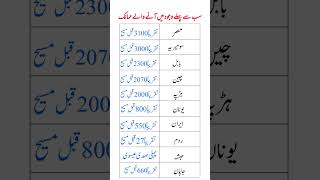 سب سے پہلے وجود میں آنے والے ممالک
مصر تقریباً 3100 قبل مسیح
سومیریہ تقریباً 3000 قبل مسیح
بابل تقریباً 2300 قبل مسیح
چین تقریباً 2070 قبل مسیح
ہڑپہ تقریباً 2000 قبل مسیح
یونان تقریباً 800 قبل مسیح
ایران تقریباً 550 قبل مسیح
روم تقریباً 27 قبل مسیح
حبشہ پہلی صدی عیسوی
جاپان تقریباً 660 قبل مسیح